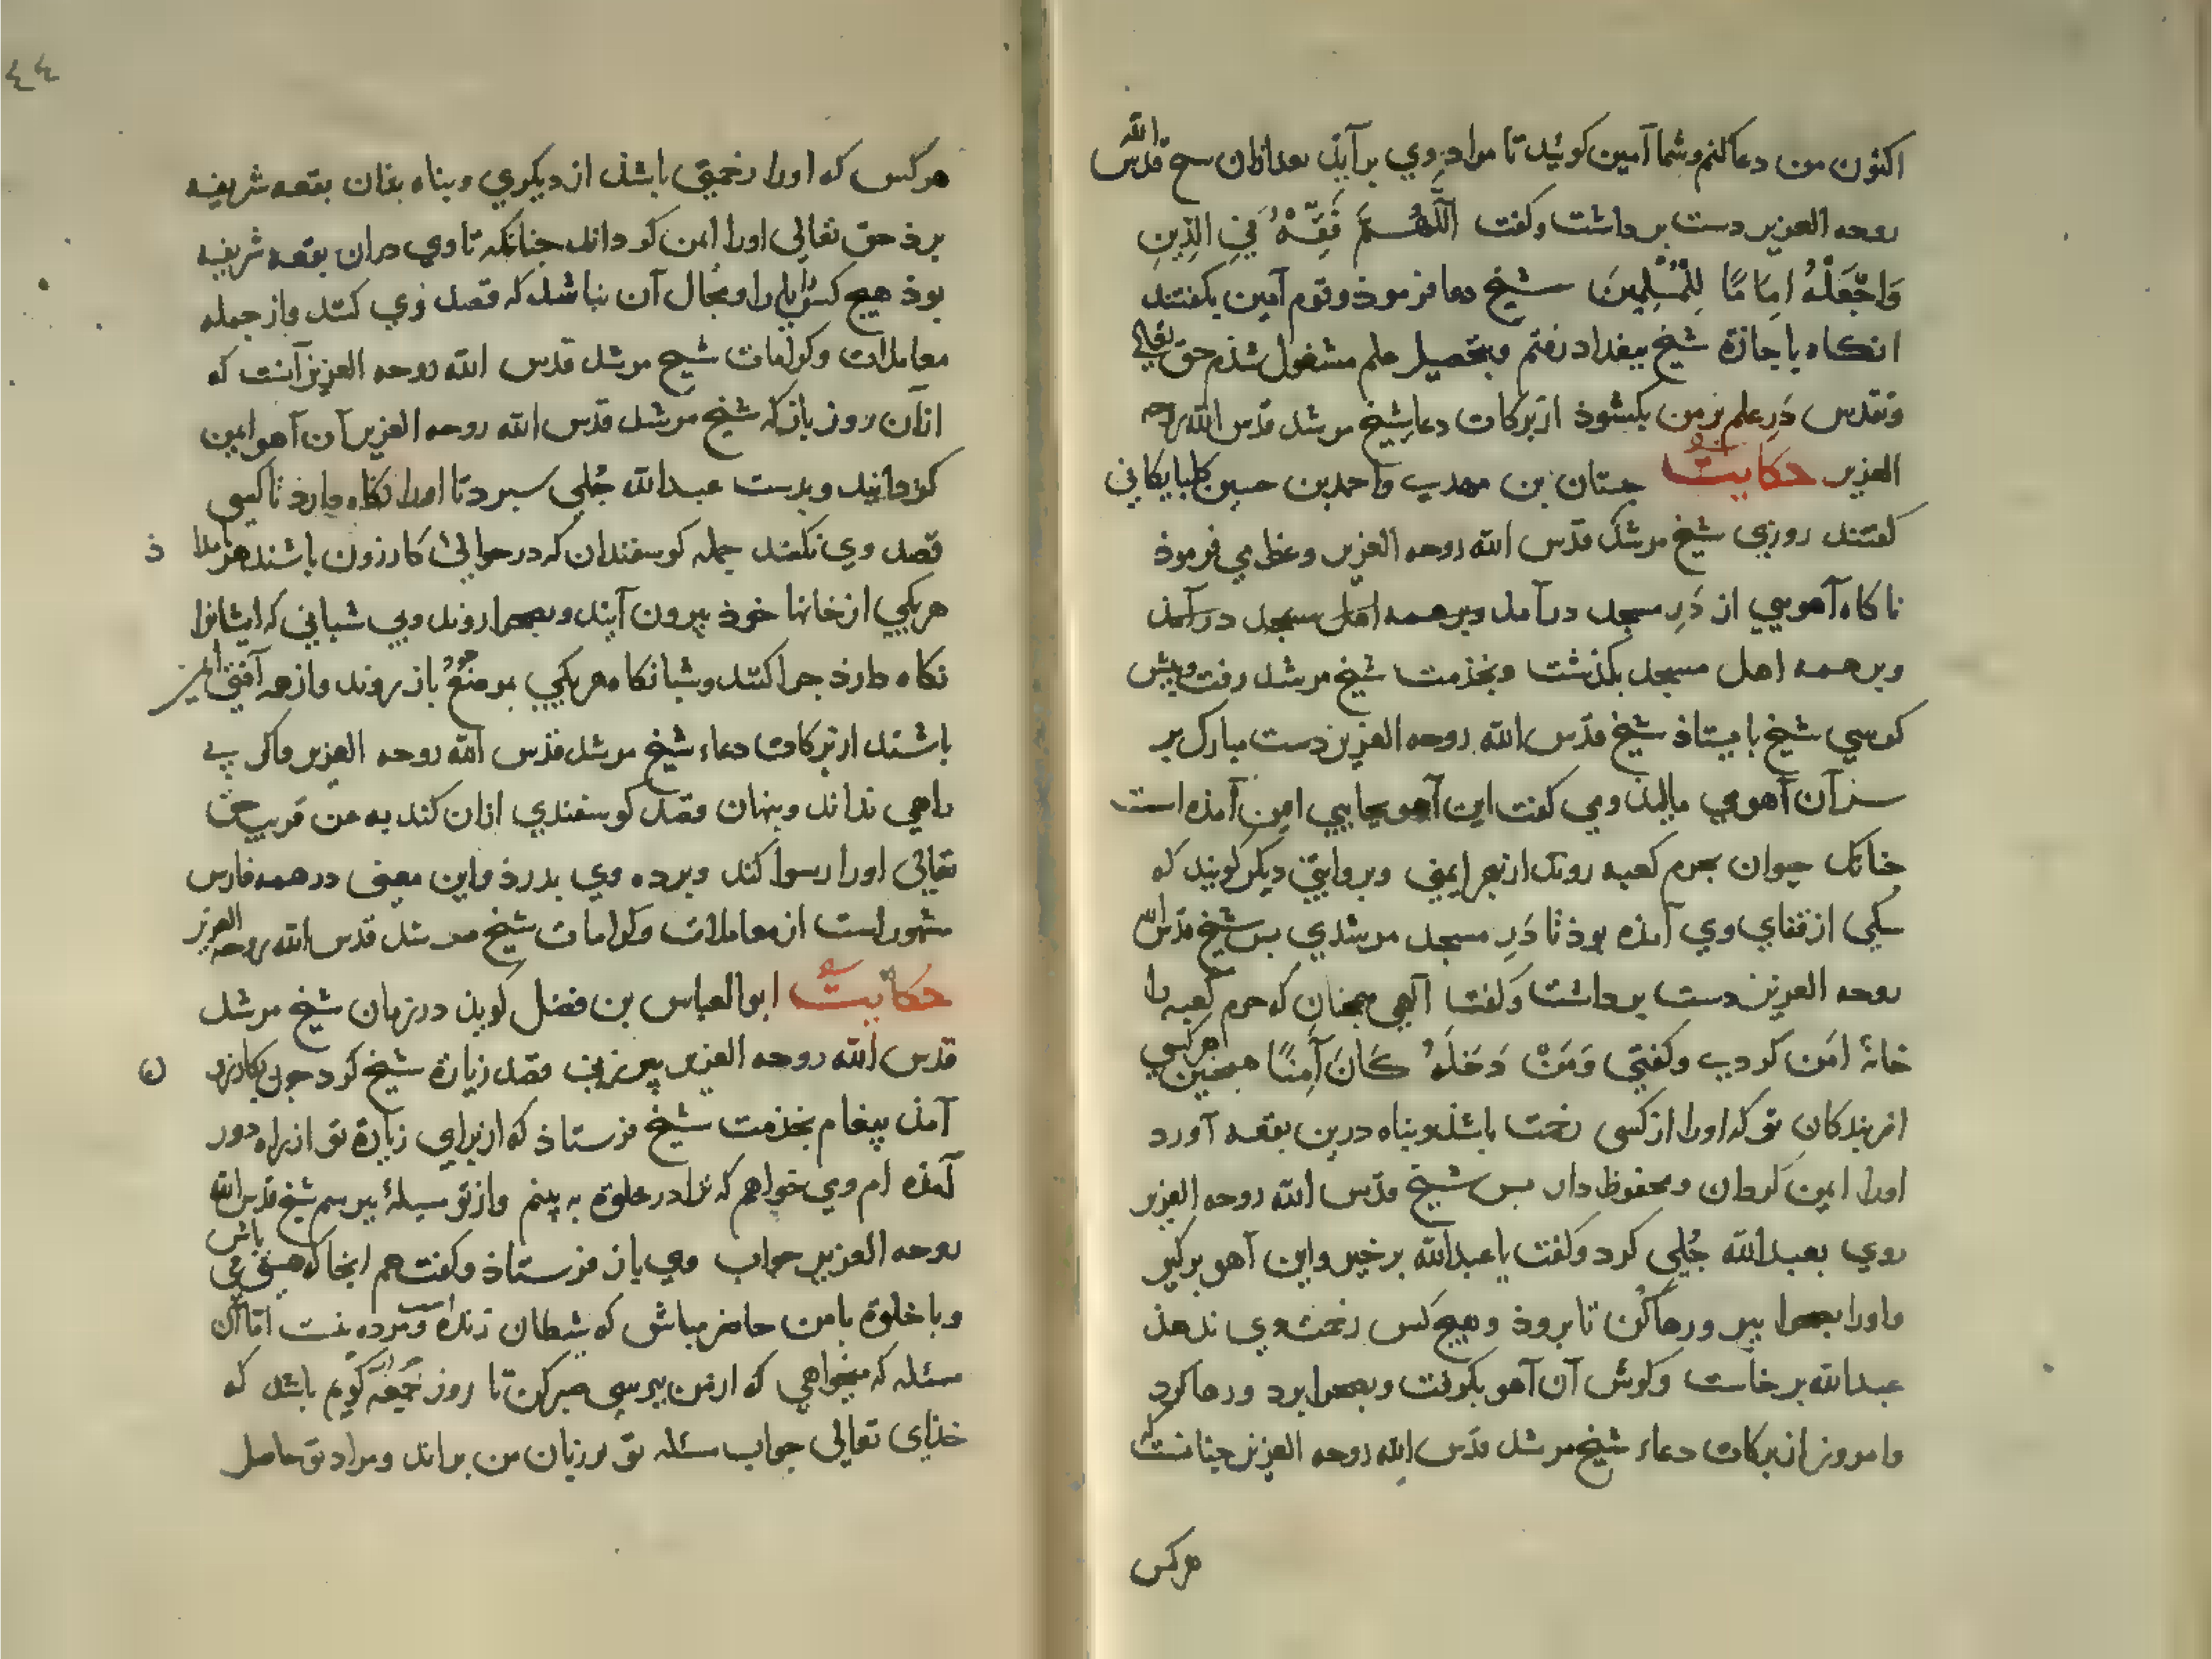 اکنون من دعا کنم و شما آمین کوئید تا مراد وي برآیذ بعد ازان شیخ قدس الله
روحه العزیز دست برداشت وکفت اَللّهُمَّ فَقِّهْهُ فِي الدِّينِ
وَاجْعَلْهُ اِمَامًا لِلْمُسْلِمِينَ شیخ دعا فرموذ وقوم آمین بکفتند
انکاه باجازة شیخ ببغداد رفتم وبتحصیل علم مشغول شذم حق تعالی
وتقدس دَرِ علم بر من بکشوذ از برکات دعاء شیخ مرشد قدس الله روحه
العزیز حکایت جستان بن مهدي واحمد بن حسین کلبایکاني
کفتند روزي شیخ مرشد قدس الله روحه العزیز وعظ مي فرموذ
ناکاه آهویي از دَرِ مسجد درآمد وبر همه اهل مسجد درآمذ
وبر همه اهل مسجد بکذشت وبخذمت شیخ مرشد رفت وپیش
کرسي شیخ بایستاذ شیخ قدس الله روحه العزیز دست مبارک بر
سر آن آهو مي مالیذ ومي کفت این آهو بجایي امن آمذه است
جنانک حیوان بحرم کعبه روند از بهر ایمني وبروایتي دیکر کویند که
سکي از قفاي وي آمذه بوذ تا دَرِ مسجد مرشدي بس شیخ قدس الله
روحه العزیز دست برداشت وکفت الهي همجنان که حرم کعبه را
خانهٔ امن کردي وکفتي وَمَنْ دَخَلَهُ کَانَ آمِنًا همجنین هر کسي
از بندکان تو که اورا از کسي زحمت باشذ وپناه درین بقعه آورد
اورا ایمن کردان ومحفوظ دار بس شیخ قدس الله روحه العزیز
روي بعبدالله جُلي کرد وکفت یا عبدالله برخیز واین آهو برکیر
واورا بصحرا بر ورها کن تا بروذ وهیج کس زحمت وي ندهذ
عبدالله برخاست وکوش آن آهو بکرفت وبصحرا برد ورها کرد
وامروز از برکات دعاء شیخ مرشد قدس الله روحه العزیز جنانست که
هرکس
٤٤
هرکس که اورا زحمتي باشذ از دیکري وپناه بذان بقعه شریفه
برذ حق تعالي اورا ایمن کرداند جنانکه تا وي دران بقعه شریفه
بوذ هیج کس را مجال آن نباشد که قصد وي کند واز جمله
معاملات وکرامات شیخ مرشد قدس الله روحه العزیز آنست که
ازآن روز باز که شیخ مرشد قدس الله روحه العزیز آن آهو ایمن
کردانید وبدست عبدالله جُلي سبرد تا اورا نکاه دارذ تا کسي
قصد وي نکند جمله کوسفندان که در حوالي کازرون باشند هر بامداد
هریکي از خانها خوذ بیرون آیند وبصحرا روند وبي شباني که ایشانرا
نکاه دارذ جرا کنند وشبانکاه هریکي بموضع خوذ باز روند واز همه آفتي ایمن
باشند از برکات دعاء شیخ مرشد قدس الله روحه العزیز واکر بي
راهي نداند وپنهان قصد کوسفندي ازان کند به من قریب حق
تعالی اورا رسوا کند وپرده وي بدرذ واین معني در همه فارس
مشهور است از معاملات وکرامات شیخ مرشد قدس الله روحه العزیز
حکایت ابوالعباس بن فضل کویذ در زمان شیخ مرشد
قدس الله روحه العزیز پیر زني قصد زیارة شیخ کرد جون بکازرون
آمذ پیغام بخذمت شیخ فرستاذ که از براي زیارة تو از راه دور
آمذه ام ومي خواهم که ترا در خلوة به بینم واز تو مسیلهٔ بپرسم شیخ قدس الله
روحه العزیز جواب وي باز فرستاذ وکفت هم آنجا که هستي مي باش
وبا خلوة با من حاضر مباش که شیطان زنده است ومرده نیست اما آن
مسئله که میخواهي که از من بپرسي صبر کن تا روز جمعه که کویم باشد که
خذاي تعالی جواب مسئله تو بر زبان من براند ومراد تو حاصل